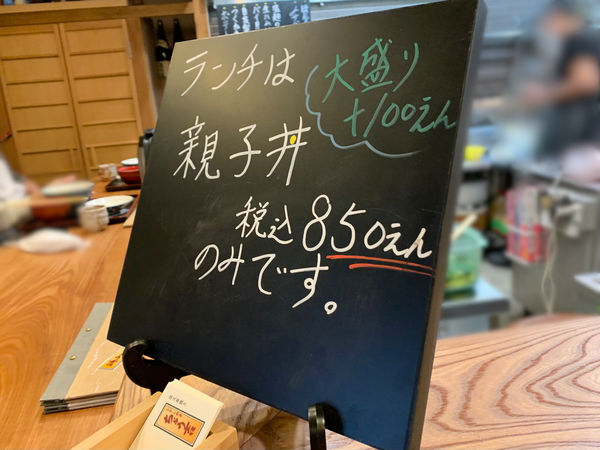 ランチは
大盛り
+100えん
親子丼
税込850えん
のみです。